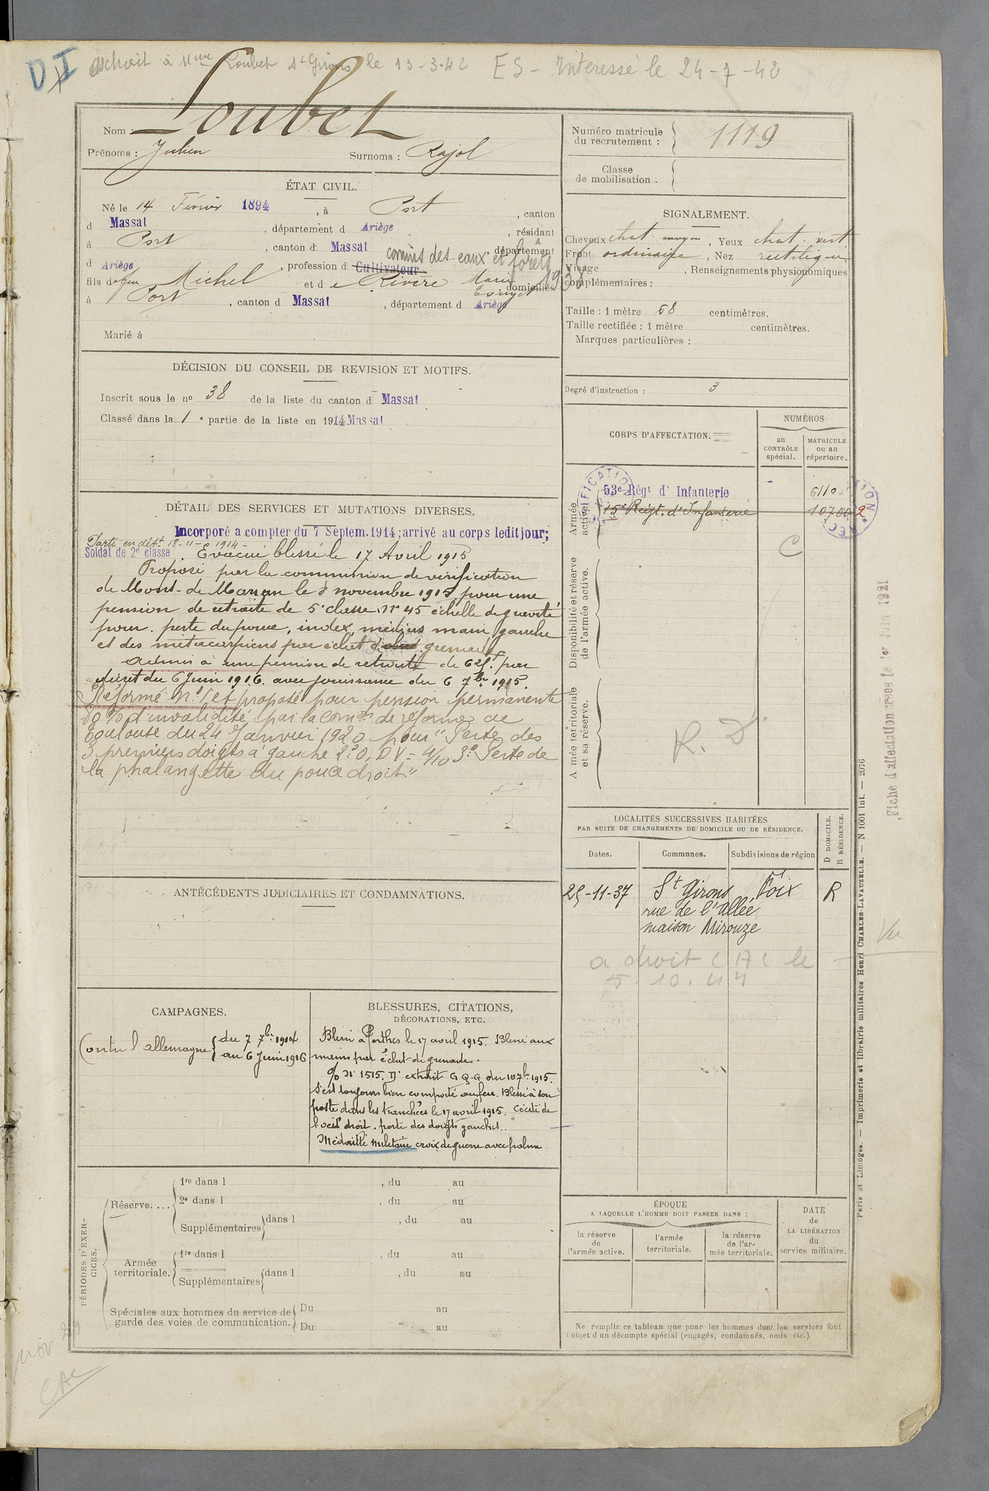 DI
droit à Mme Loubet St Girons le 13-3-42 ES - Interessé le 24-7-42
Nom : Loubet
Prénoms : Julien Surnoms : Rajol
ÉTAT CIVIL.
Né le 14 Février 1894, à Port, canton
d Massat, département d Ariège, résidant
à Port, canton d Massat, département
d Ariège, profession d Cultivateur commis des eaux et forêts
fils de feu Michel et de Rivère Marie domiciliés
à Port, canton d Massat, département d Ariège
Marié à
DÉCISION DU CONSEIL DE REVISION ET MOTIFS.
Inscrit sous le no 38 de la liste du canton d Massat
Classé dans la 1e partie de la liste en 1914 Massat
DÉTAIL DES SERVICES ET MUTATIONS DIVERSES.
Incorporé a compter du 7 Septem. 1914; arrivé au corps ledit jour;
Parti en dét 18-11-1914-
Soldat de 2e classe. Evacué blessé le 17 Avril 1915
Proposé par la commission de vérification
de Mont-de-Marsan le 3 novembre 1915 pour une
pension de retraite de 5e classe No 45 échelle de gravité
pour perte du pouce, index médius main gauche
et des métacarpiens par éclat d'obus grenade
Admis à une pension de retraite de 621f par
décret du 6 Juin 1916 avec jouissance du 6 7bre 1915.
Réformé no 1 et proposé pour pension permanente
80% d'invalidité par la comon de réforme de
Toulouse du 24 Janvier 1920 pour "Perte des
3 premiers doigts à gauche 2o O, D V = 4/10 3o Perte de
la phalangette du pouce droit"
ANTÉCÉDENTS JUDICIAIRES ET CONDAMNATIONS.
CAMPAGNES.
Contre l'allemagne { du 7 7bre 1914
au 6 Juin 1916
BLESSURES, CITATIONS,
DÉCORATIONS, ETC.
Blessé à Perthes le 17 avril 1915. Blessé aux
mains par éclat de grenade.
O/ No 1515. D. extrait G.Q.G. du 10 7bre 1915.
S'est toujours bien comporté au feu. Blessé à son
poste dans les tranchées le 17 avril 1915. Cécité de
l'oeil droit, perte des doigts gauches.
Médaille militaire croix de guerre avec palme
PÉRIODES D'EXERCICES.
Réserve....
1re dans l , du au
2e dans l , du au
Supplémentaires dans l , du au
Armée territoriale.
1re dans l , du au
Supplémentaires dans l , du au
Spéciales aux hommes du service de
garde des voies de communication.
Du au
Du au
CAC
Numéro matricule
du recrutement : 1119
Classe
de mobilisation :
SIGNALEMENT.
Cheveux chat. moyen, Yeux chat. vert
Front ordinaire, Nez rectiligne
Visage , Renseignements physionomiques
complémentaires :
Taille : 1 mètre 68 centimètres.
Taille rectifiée : 1 mètre centimètres.
Marques particulières :
Degré d'instruction : 3
CORPS D'AFFECTATION.
NUMÉROS
au
CONTRÔLE
spécial.
MATRICULE
ou au
répertoire.
Armée active.
53e Régt d'Infanterie 6110
15e Régt. d'Infanterie 10700
C
Disponibilité et réserve
de l'armée active.
Armée territoriale
et sa réserve.
R. D.
LOCALITÉS SUCCESSIVES HABITÉES
PAR SUITE DE CHANGEMENTS DE DOMICILE OU DE RÉSIDENCE.
D DOMICILE.
R RÉSIDENCE.
Dates. Communes. Subdivisions de région
25-11-37 St Girons Foix R
rue de l'Allée
maison Mirouze
a droit CAC le
5.10.44
ÉPOQUE
A LAQUELLE L'HOMME DOIT PASSER DANS :
la réserve
de
l'armée active.
l'armée
territoriale.
la réserve
de l'ar-
mée territoriale.
DATE
de
LA LIBÉRATION
du
service militaire.
Ne remplir ce tableau que pour les hommes dont les services font
l'objet d'un décompte spécial (engagés, condamnés, omis etc.).
Paris et Limoges. — Imprimerie et librairie militaires Henri CHARLES-LAVAUZELLE. — N 1001 int. — 2076
Fiche d'affectation créée le 1er Juin 1921
Vu